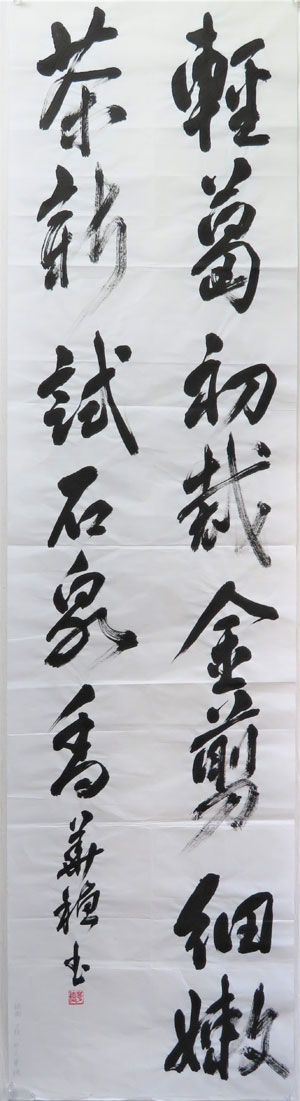 輕葛初裁金剪細嫩
茶新試石泉香
華穂書